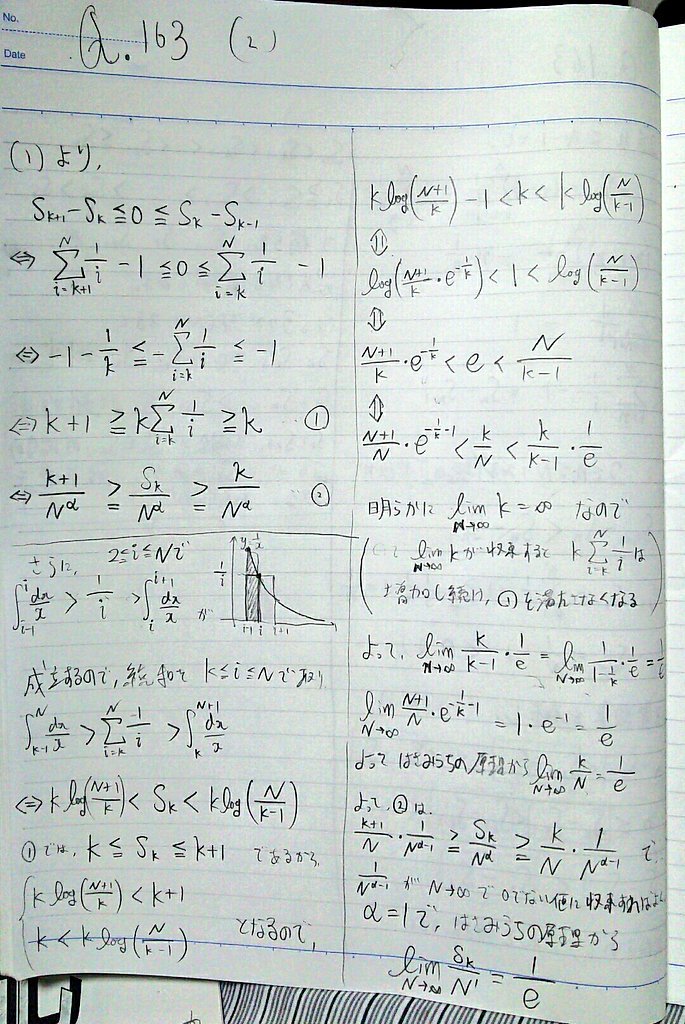 No.
Date
Q.163 (2)
(1)より,
S_{k+1}-S_k ≦ 0 ≦ S_k-S_{k-1}
⇔ \sum_{i=k+1}^{N} \frac{1}{i} -1 ≦ 0 ≦ \sum_{i=k}^{N} \frac{1}{i} -1
⇔ -1-\frac{1}{k} ≦ -\sum_{i=k}^{N} \frac{1}{i} ≦ -1
⇔ k+1 ≧ k\sum_{i=k}^{N} \frac{1}{i} ≧ k …①
⇔ \frac{k+1}{N^α} ≧ \frac{S_k}{N^α} ≧ \frac{k}{N^α} …②
さらに, 2≦i≦Nで
\int_{i-1}^{i} \frac{dx}{x} > \frac{1}{i} > \int_{i}^{i+1} \frac{dx}{x} が
y=\frac{1}{x}
\frac{1}{i}
i-1 i i+1
成立するので, 総和を k≦i≦Nで取り
\int_{k-1}^{N} \frac{dx}{x} > \sum_{i=k}^{N} \frac{1}{i} > \int_{k}^{N+1} \frac{dx}{x}
⇔ k log(\frac{N+1}{k}) < S_k < k log(\frac{N}{k-1})
①では, k ≦ S_k ≦ k+1 であるから,
k log(\frac{N+1}{k}) < k+1
k < k log(\frac{N}{k-1}) となるので,
k log(\frac{N+1}{k}) -1 < k < k log(\frac{N}{k-1})
⇕
log(\frac{N+1}{k}・e^{-\frac{1}{k}}) < 1 < log(\frac{N}{k-1})
⇕
\frac{N+1}{k}・e^{-\frac{1}{k}} < e < \frac{N}{k-1}
⇕
\frac{N+1}{N}・e^{-\frac{1}{k}-1} < \frac{k}{N} < \frac{k}{k-1}・\frac{1}{e}
明らかに \lim_{N→∞} k = ∞ なので
\lim_{N→∞} kが収束すると k\sum_{i=k}^{N} \frac{1}{i} は
増加し続け, ①を満たさなくなる)
よって, \lim_{N→∞} \frac{k}{k-1}・\frac{1}{e} = \lim_{N→∞} \frac{1}{1-\frac{1}{k}}・\frac{1}{e} = \frac{1}{e}
\lim_{N→∞} \frac{N+1}{N}・e^{-\frac{1}{k}-1} = 1・e^{-1} = \frac{1}{e}
よって はさみうちの原理から \lim_{N→∞} \frac{k}{N} = \frac{1}{e}
よって, ②は,
\frac{k+1}{N}・\frac{1}{N^{α-1}} ≧ \frac{S_k}{N^α} ≧ \frac{k}{N}・\frac{1}{N^{α-1}} で,
\frac{1}{N^{α-1}} が N→∞で 0でない値に収束すればよく
α=1で, はさみうちの原理から
\lim_{N→∞} \frac{S_k}{N^1} = \frac{1}{e}